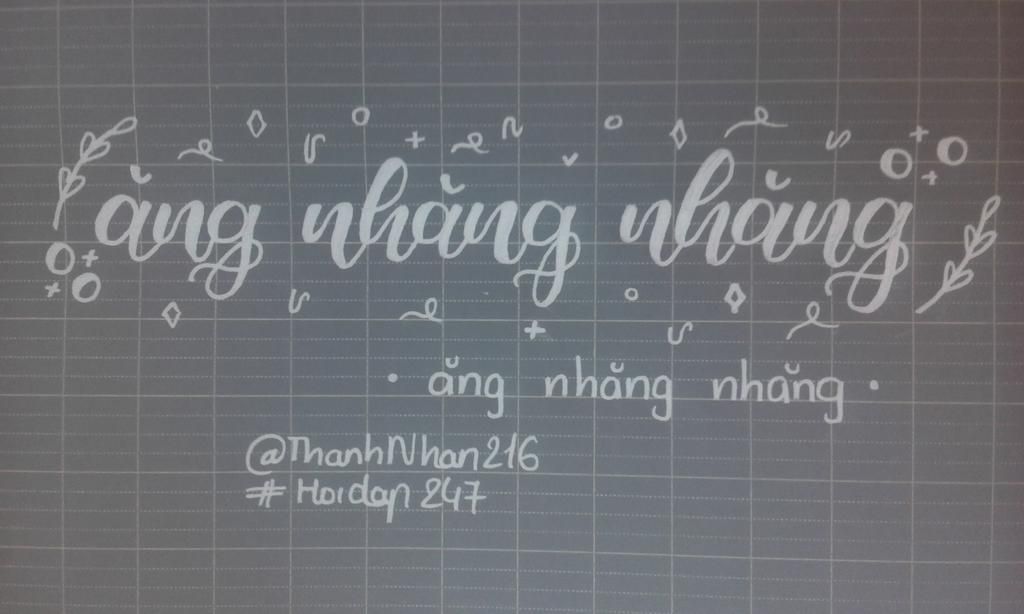 ăng nhăng nhăng
• ăng nhăng nhăng •
@ThanhNhan216
#Hoidap247